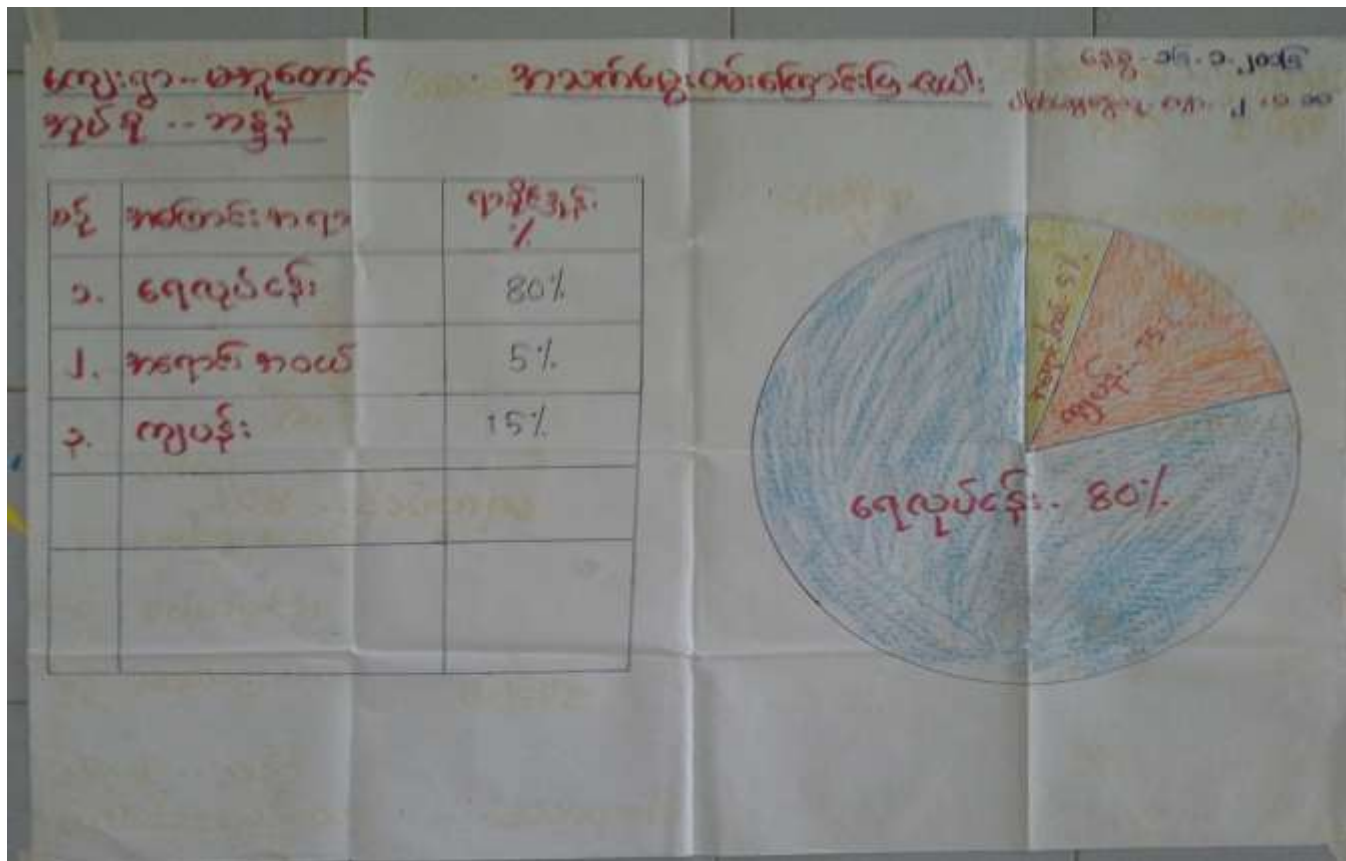 ကျေးရွာ .. မအူတောင်
အုပ်စု .. ဘန္နန်
အသက်မွေးဝမ်းကြောင်းပြ ဇယား
နေ့စွဲ - ၁၅.၁.၂၀၁၅
စဉ် အကြောင်းအရာ ရာခိုင်နှုန်း %
၁. ရေလုပ်ငန်း 80%
၂. အရောင်းအဝယ် 5%
၃. ကျပန်း 15%
အရောင်းအဝယ် 5%
ကျပန်း .. 15%
ရေလုပ်ငန်း .. 80%